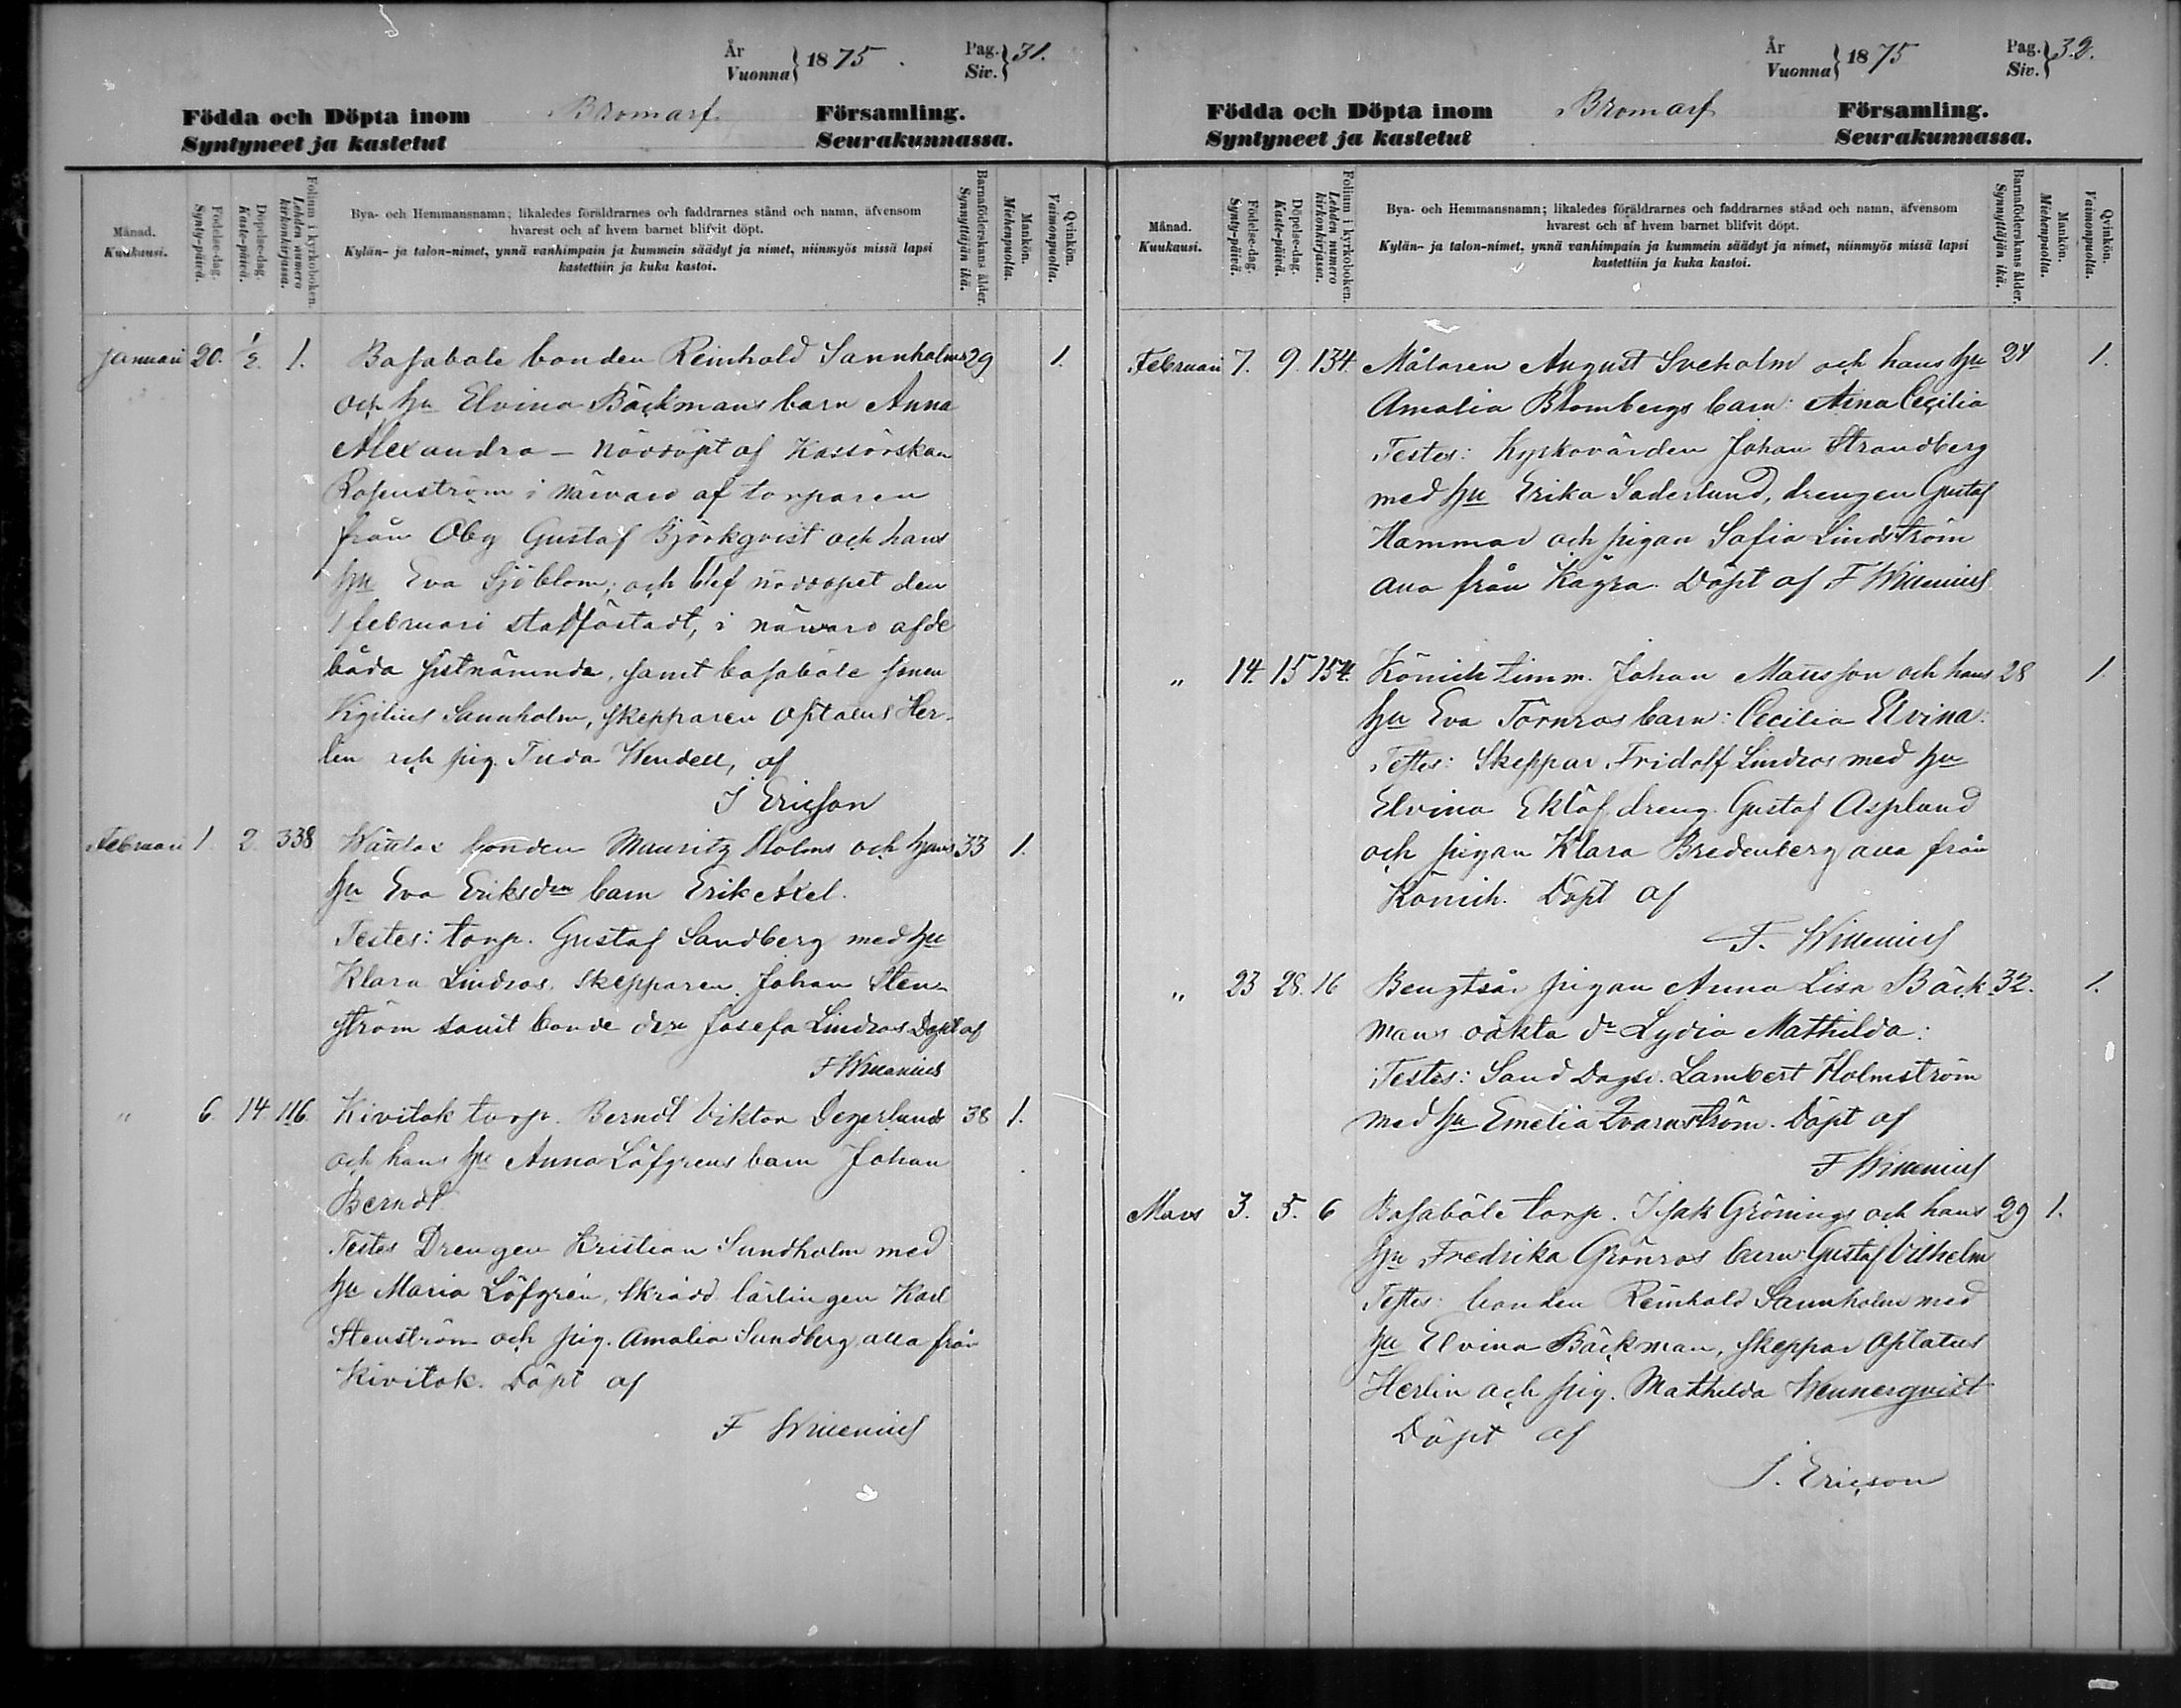 År
Vuonna } 1875. Pag.
Siv. } 31.
Födda och Döpta inom Bromarf Församling.
Syntyneet ja kastetut Seurakunnassa.
Månad.
Kuukausi.
Födelse-dag.
Synty-päivä.
Döpelse-dag.
Kaste-päivä.
Folium i kyrkoboken.
Lehden numero
kirkonkirjassa.
Bya- och Hemmansnamn; likaledes föräldrarnes och faddrarnes stånd och namn, äfvensom
hvarest och af hvem barnet blifvit döpt.
Kylän- ja talon-nimet, ynnä vanhimpain ja kummein säädyt ja nimet, niinmyös missä lapsi
kastettiin ja kuka kastoi.
Barnaföderskans ålder.
Synnyttäjän ikä.
Mankön.
Miehenpuolta.
Qvinkön.
Vaimonpuolta.
Januari 20. 1/2. 1. Basaböle bonden Reinhold Sannholms 29 1.
och hu Elvina Bäckmans barn Anna
Alexandra – nöddöpt af Kassörskan
Rosenström i närvaro af torparen
från Öby Gustaf Björkqvist och hans
hu Eva Sjöblom; och blef nöddopet den
1 februari stadfästadt, i närvaro af de
båda sistnämnda, samt basaböle sonen
Vigilius Sannholm, skepparen Optatus Her-
lin och pig. Tilda Wendell, af
J Ericson
Februari 1. 2. 338 Wättlax bonden Mauritz Holms och hans 33 1.
hu Eva Eriksdrn barn Erik Axel.
Testes: torp. Gustaf Sandberg med hu
Klara Lindros, skepparen Johan Sten-
ström samt bonde dr Josefa Lindros. Döpt af
F Willenius
" 6. 14 116. Kivitok torp. Berndt Viktor Degerlunds 38 1.
och hans hu Anna Löfgrens barn Johan
Berndt
Testes Drengen Kristian Sundholm med
hu Maria Löfgrén, skrädd. lärlingen Karl
Stenström och pig. Amalia Sundberg, alla från
Kivitok. Döpt af
F Willenius
År
Vuonna } 1875 Pag.
Siv. } 32.
Födda och Döpta inom Bromarf Församling.
Syntyneet ja kastetut Seurakunnassa.
Månad.
Kuukausi.
Födelse-dag.
Synty-päivä.
Döpelse-dag.
Kaste-päivä.
Folium i kyrkoboken.
Lehden numero
kirkonkirjassa.
Bya- och Hemmansnamn; likaledes föräldrarnes och faddrarnes stånd och namn, äfvensom
hvarest och af hvem barnet blifvit döpt.
Kylän- ja talon-nimet, ynnä vanhimpain ja kummein säädyt ja nimet, niinmyös missä lapsi
kastettiin ja kuka kastoi.
Barnaföderskans ålder.
Synnyttäjän ikä.
Mankön.
Miehenpuolta.
Qvinkön.
Vaimonpuolta.
Februari 7. 9. 134. Målaren August Sveholm och hans hu 24 1.
Amalia Blombergs barn: Aina Cecilia
Testes: Kyrkovärden Johan Strandberg
med hu Erika Saderlund, drengen Gustaf
Hammar och pigan Sofia Lindström
alla från Kägra. Döpt af F Willenius
" 14. 15 154. Könich timm. Johan Mattsson och hans 28 1.
hu Eva Törnros barn: Cecilia Elvina:
Testes: Skeppar Fridolf Lindros med hu
Elvina Eklöf, dreng. Gustaf Asplund
och pigan Klara Bredenberg alla från
Könich. Döpt af
F. Willenius
" 23 28. 16 Bengtsår pigan Anna Lisa Bäck- 32. 1.
mans oäkta dr Lydia Mathilda:
Testes: Sand Dagsv. Lambert Holmström
med hu Emelia Qvarnström. Döpt af
F Willenius
Mars 3. 5. 6 Basaböle torp. Isak Grönings och hans 29 1.
hu Fredrika Grönros barn: Gustaf Vilhelm
Testes: bonden Reinhold Sannholm med
hu Elvina Bäckman, skeppar Optatus
Herlin och pig. Mathilda Wennerqvist
Döpt af
J. Ericson